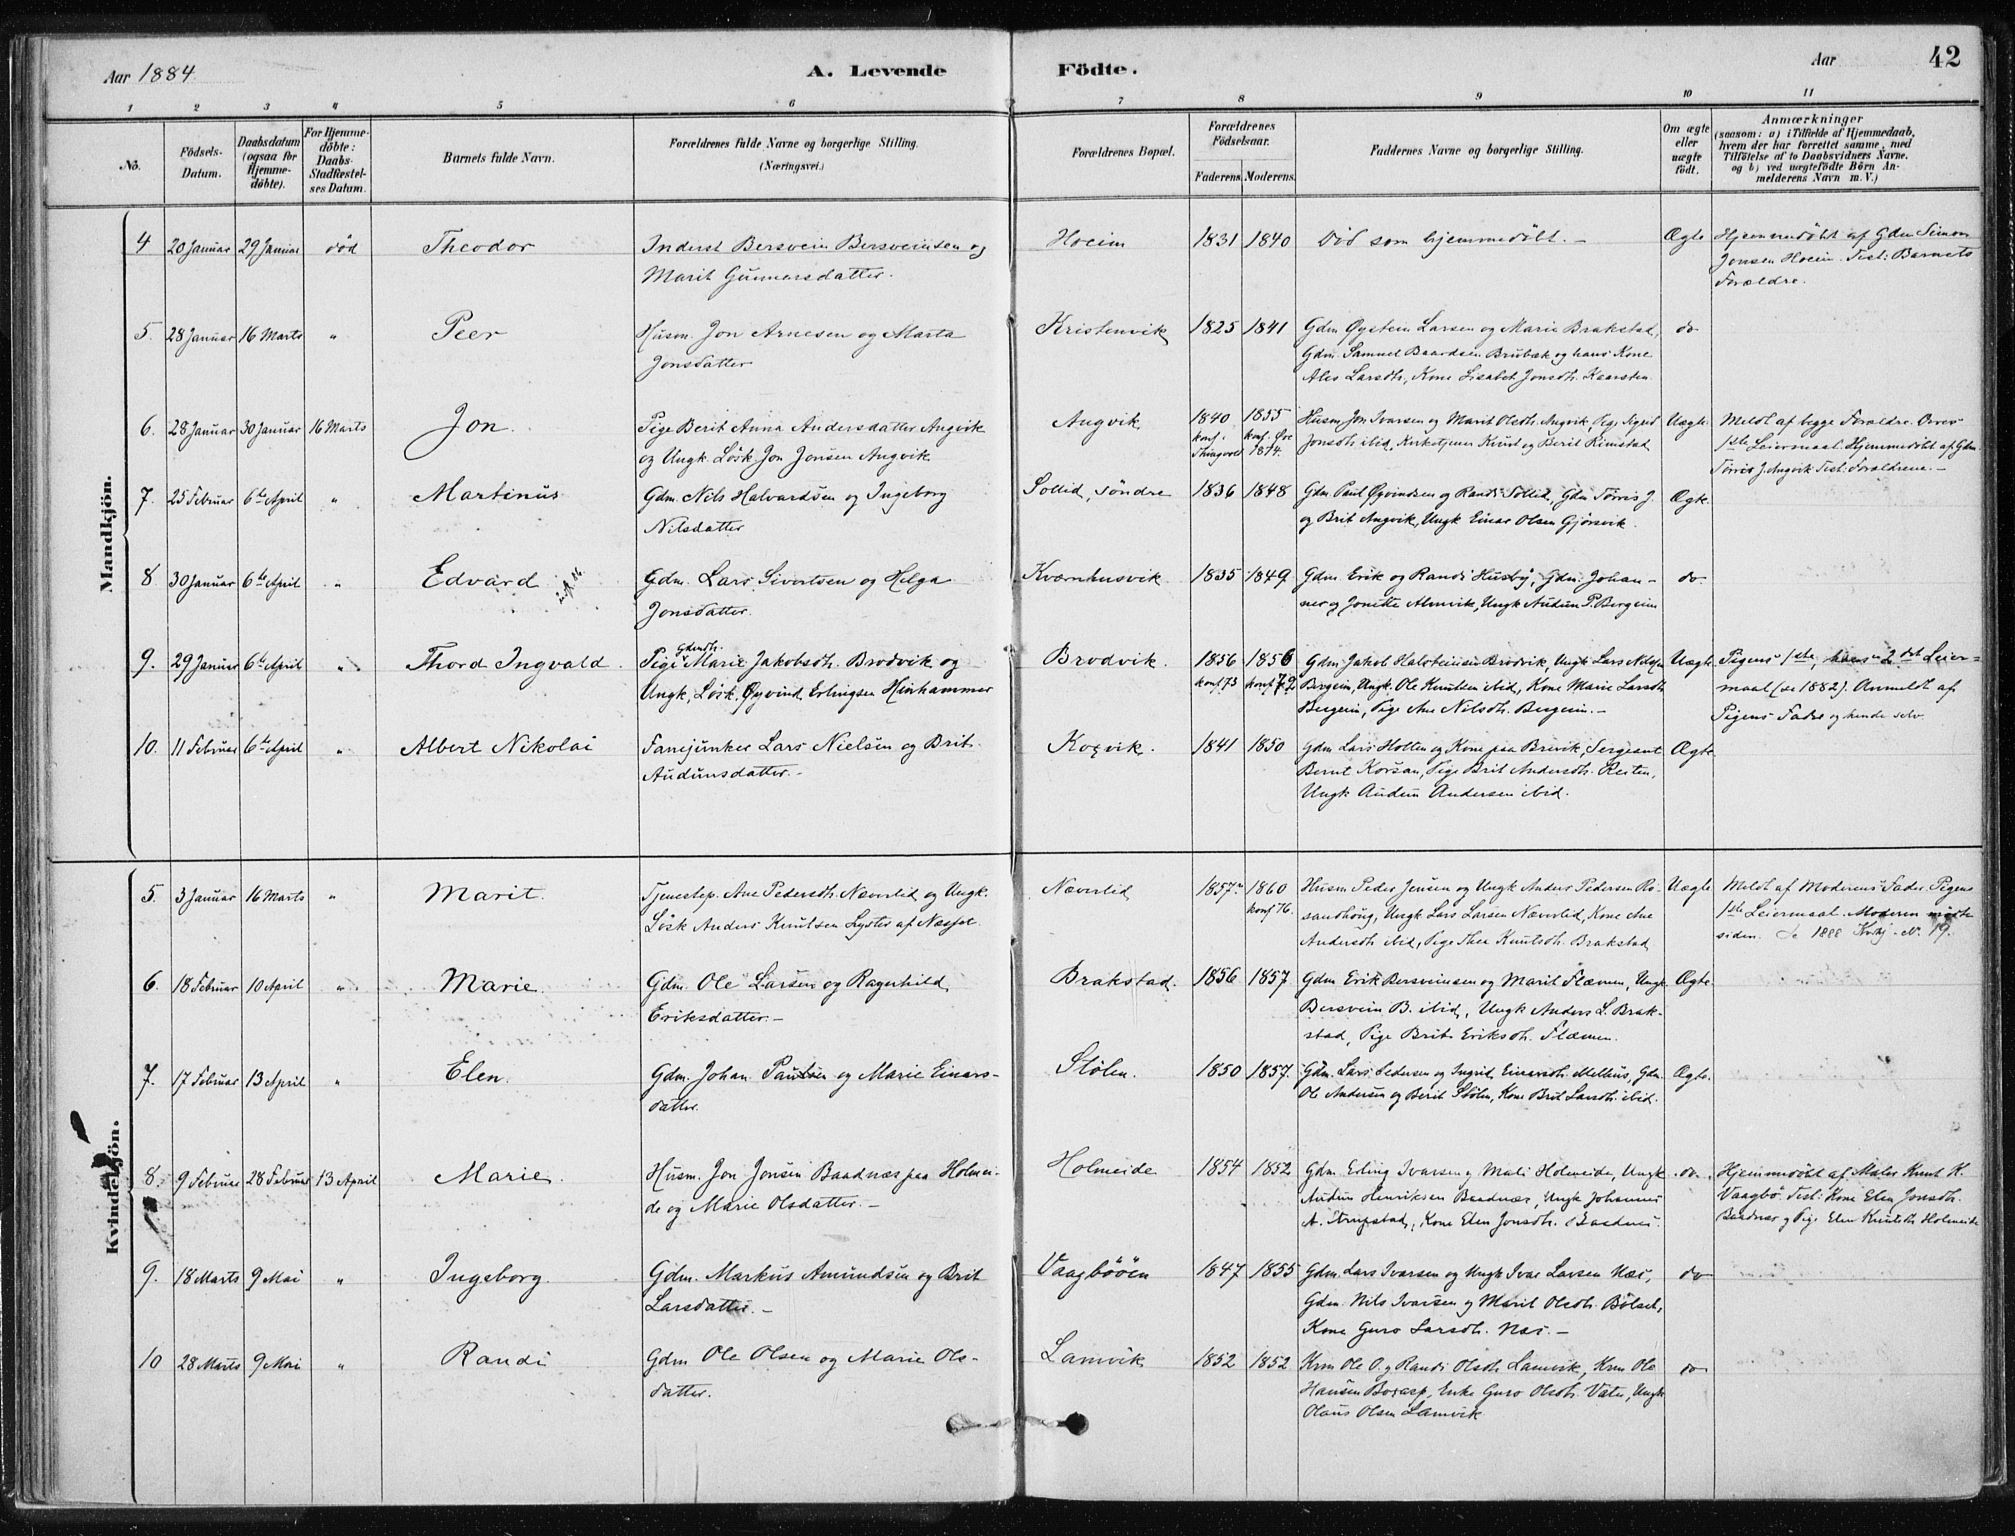 Aar 1884
A. Levende Födte.
Aar 42
1 2 3 4 5 6 7 8 9 10 11
No.
Födsels-Datum.
Daabsdatum (ogsaa for Hjemme-döbte).
For Hjemme-döbte: Daabs-Stadfæstel-ses Datum.
Barnets fulde Navn.
Forældrenes fulde Navne og borgerlige Stilling. (Næringsvei.)
Forældrenes Bopæl.
Forældrenes Födselsaar.
Faderens. Moderens.
Faddernes Navne og borgerlige Stilling.
Om ægte eller uægte født.
Anmærkninger
(saasom: a) i Tilfælde af Hjemmedaab, hvem der har forrettet samme, med Tilføielse af to Daabsvidners Navne, og b) ved uægtefödte Börn An-melderens Navn m. V.)
Mandkjön.
4 20 Januar 29 Januar død Theodor Inderst Bersvein Bersveinsen og Hoeim 1831 1840 Død som hjemmedøbt. - Ægte Hjemmedøbt af Gdm Simon
Marit Gunnarsdatter. Jonsen Hoeim. Test: Barnets
Forældre.
5. 28 Januar 16 Marts " Peer Husm. Jon Arnesen og Marta Kristenvik 1825 1841 Gdm Øystein Larsen og Marie Brakstad, do
Jonsdatter Gdm. Samuel Baardsen Brubæk og hans Kone
Ales Larsdtr, Kone Lisabet Jonsdtr. Kaarsten.
6. 28 Januar 30 Januar 16 Marts Jon. Pige Berit Anna Andersdatter Angvik Angvik 1840 1855 Husm Jon Ivarsen og Marit Olsdtr. Angvik, Pige Sigrid Uægte Meldt af begge Forældre. Deres
og Ungk. Løsk. Jon Jonsen Angvik konf. i Thingvold konf. Øre 1874. Jonsdtr ibid, Kirketjener Knut og Berit Rimstad 1ste Leiermaal. Hjemmedøbt af Gdm.
Tørris J. Angvik Test: Forældrene. -
7. 25 Februar 6te April " Martinus Gdm. Nils Halvardsen og Ingeborg Sollid, søndre 1836 1848 Gdm Paul Øyvindsen og Randi Sollid, Gdm Tørris J. Ægte.
Nilsdatter og Brit Angvik, Ungk Einar Olsen Gjørsvik.
8 30 Januar 6te April " Edvard Gdm. Lars Sivertsen og Helga Kvernhusvik 1835 1849 Gdm. Erik og Randi Husby, Gdm. Johan- do
Jonsdatter. nes og Jonette Almvik, Ungk Audun P. Bergeim
9. 29 Januar 6te April " Thord Ingvald. Pige Gdmdtr. Marie Jakobsdtr. Brodvik og Brodvik. 1856 1856 Gdm. Jakob Halsteinsen Brodvik, Ungk Lars Nilsen Uægte Pigens 1ste, hans 2det Leier-
Ungk. Løsk. Øyvind Erlingsen Hinhammer konf 73 konf 72 Bergeim, Ungk. Ole Knutsen ibid, Kone Marie Larsdtr maal (se 1882). Anmeldt af
Bergeim, Pige Ane Nilsdtr. Bergeim. - Pigens Fader og hende selv.
10. 11 Februar 6te April " Albert Nikolai Fanejunker Lars Nielsen og Brit Kogvik. 1841 1850 Gdm Lars Holten og Kone paa Brevik, Sergeant Ægte.
Audunsdatter. - Bernt Korsan, Pige Brit Andersdtr. Resten,
Ungk Audun Andersen ibid.
Kvindekjön.
5. 3 Januar 16 Marts " Marit. Tjenestep. Ane Pedersdtr. Næverlid og Ungk. Næverlid 1857 1860 Husm Peder Jensen og Ungk Anders Pedersen Ro- Uægte Meldt af Moderens Fader. Pigens
Løsk Anders Knutsen Lyster af Næsset. konf 76. sandhoug, Ungk Lars Larsen Næverlid, Kone Ane 1ste Leiermaal. Moderen mødte
Andersdtr ibid, Pige Thea Knutsdtr. Brakstad siden. Se 1888 Kvkj. N. 19.
6. 18 Februar 10 April " Marie Gdm. Ole Larsen og Ragnhild Brakstad. 1856 1857. Gdm Erik Bersveinsen og Marit Flæmen, Ungk Ægte.
Eriksdatter. - Bersvein B. ibid, Ungk Anders L. Brak-
stad, Pige Brit Eriksdtr. Flæmen.
7. 17 Februar 13 April " Elen. Gdm. Johan Paulsen og Marie Einars- Stølen. 1850 1857. Gdm. Lars Pedersen og Ingrid Einarsdtr. Melhus, Gdm. Ægte.
datter. Ole Andersen og Berit Stølen, Kone Brit Larsdtr. ibid.
8 9 Februar 28 Februar 13 April Marie. Husm. Jon Jonsen Baadnæs paa Holmei- Holmeide 1854 1852 Gdm. Erling Ivarsen og Mali Holmeide, Ungk do. Hjemmedøbt af Maler Knut K.
de og Marie Olsdatter. - Audun Henriksen Baadnæs, Ungk Johannes Vaagbø. Test: Kone Elen Jonsdtr.
A. Strupstad, Kone Elen Jonsdtr. Baadnes. Baadnæs og Pige Elen Knutsdtr Holmeide
9. 18 Marts 9 Mai " Ingeborg. Gdm. Markus Amundsen og Brit Vaagbøøen 1847 1855 Gdm. Lars Ivarsen og Ungk Ivar Larsen Næs, do
Larsdatter. - Gdm. Nils Ivarsen og Marit Olsdtr. Bølset,
Kone Guro Larsdtr. Næs. -
10 28 Marts 9 Mai " Randi Gdm Ole Olsen og Marie Ols- Lamvik 1852 1852 Krm Ole O. og Randi Olsdtr. Lamvik, Krm Ole do
datter. Hansen Bogasp, Enke Guro Olsdtr. Vatn, Ungk
Olaus Olsen Lamvik